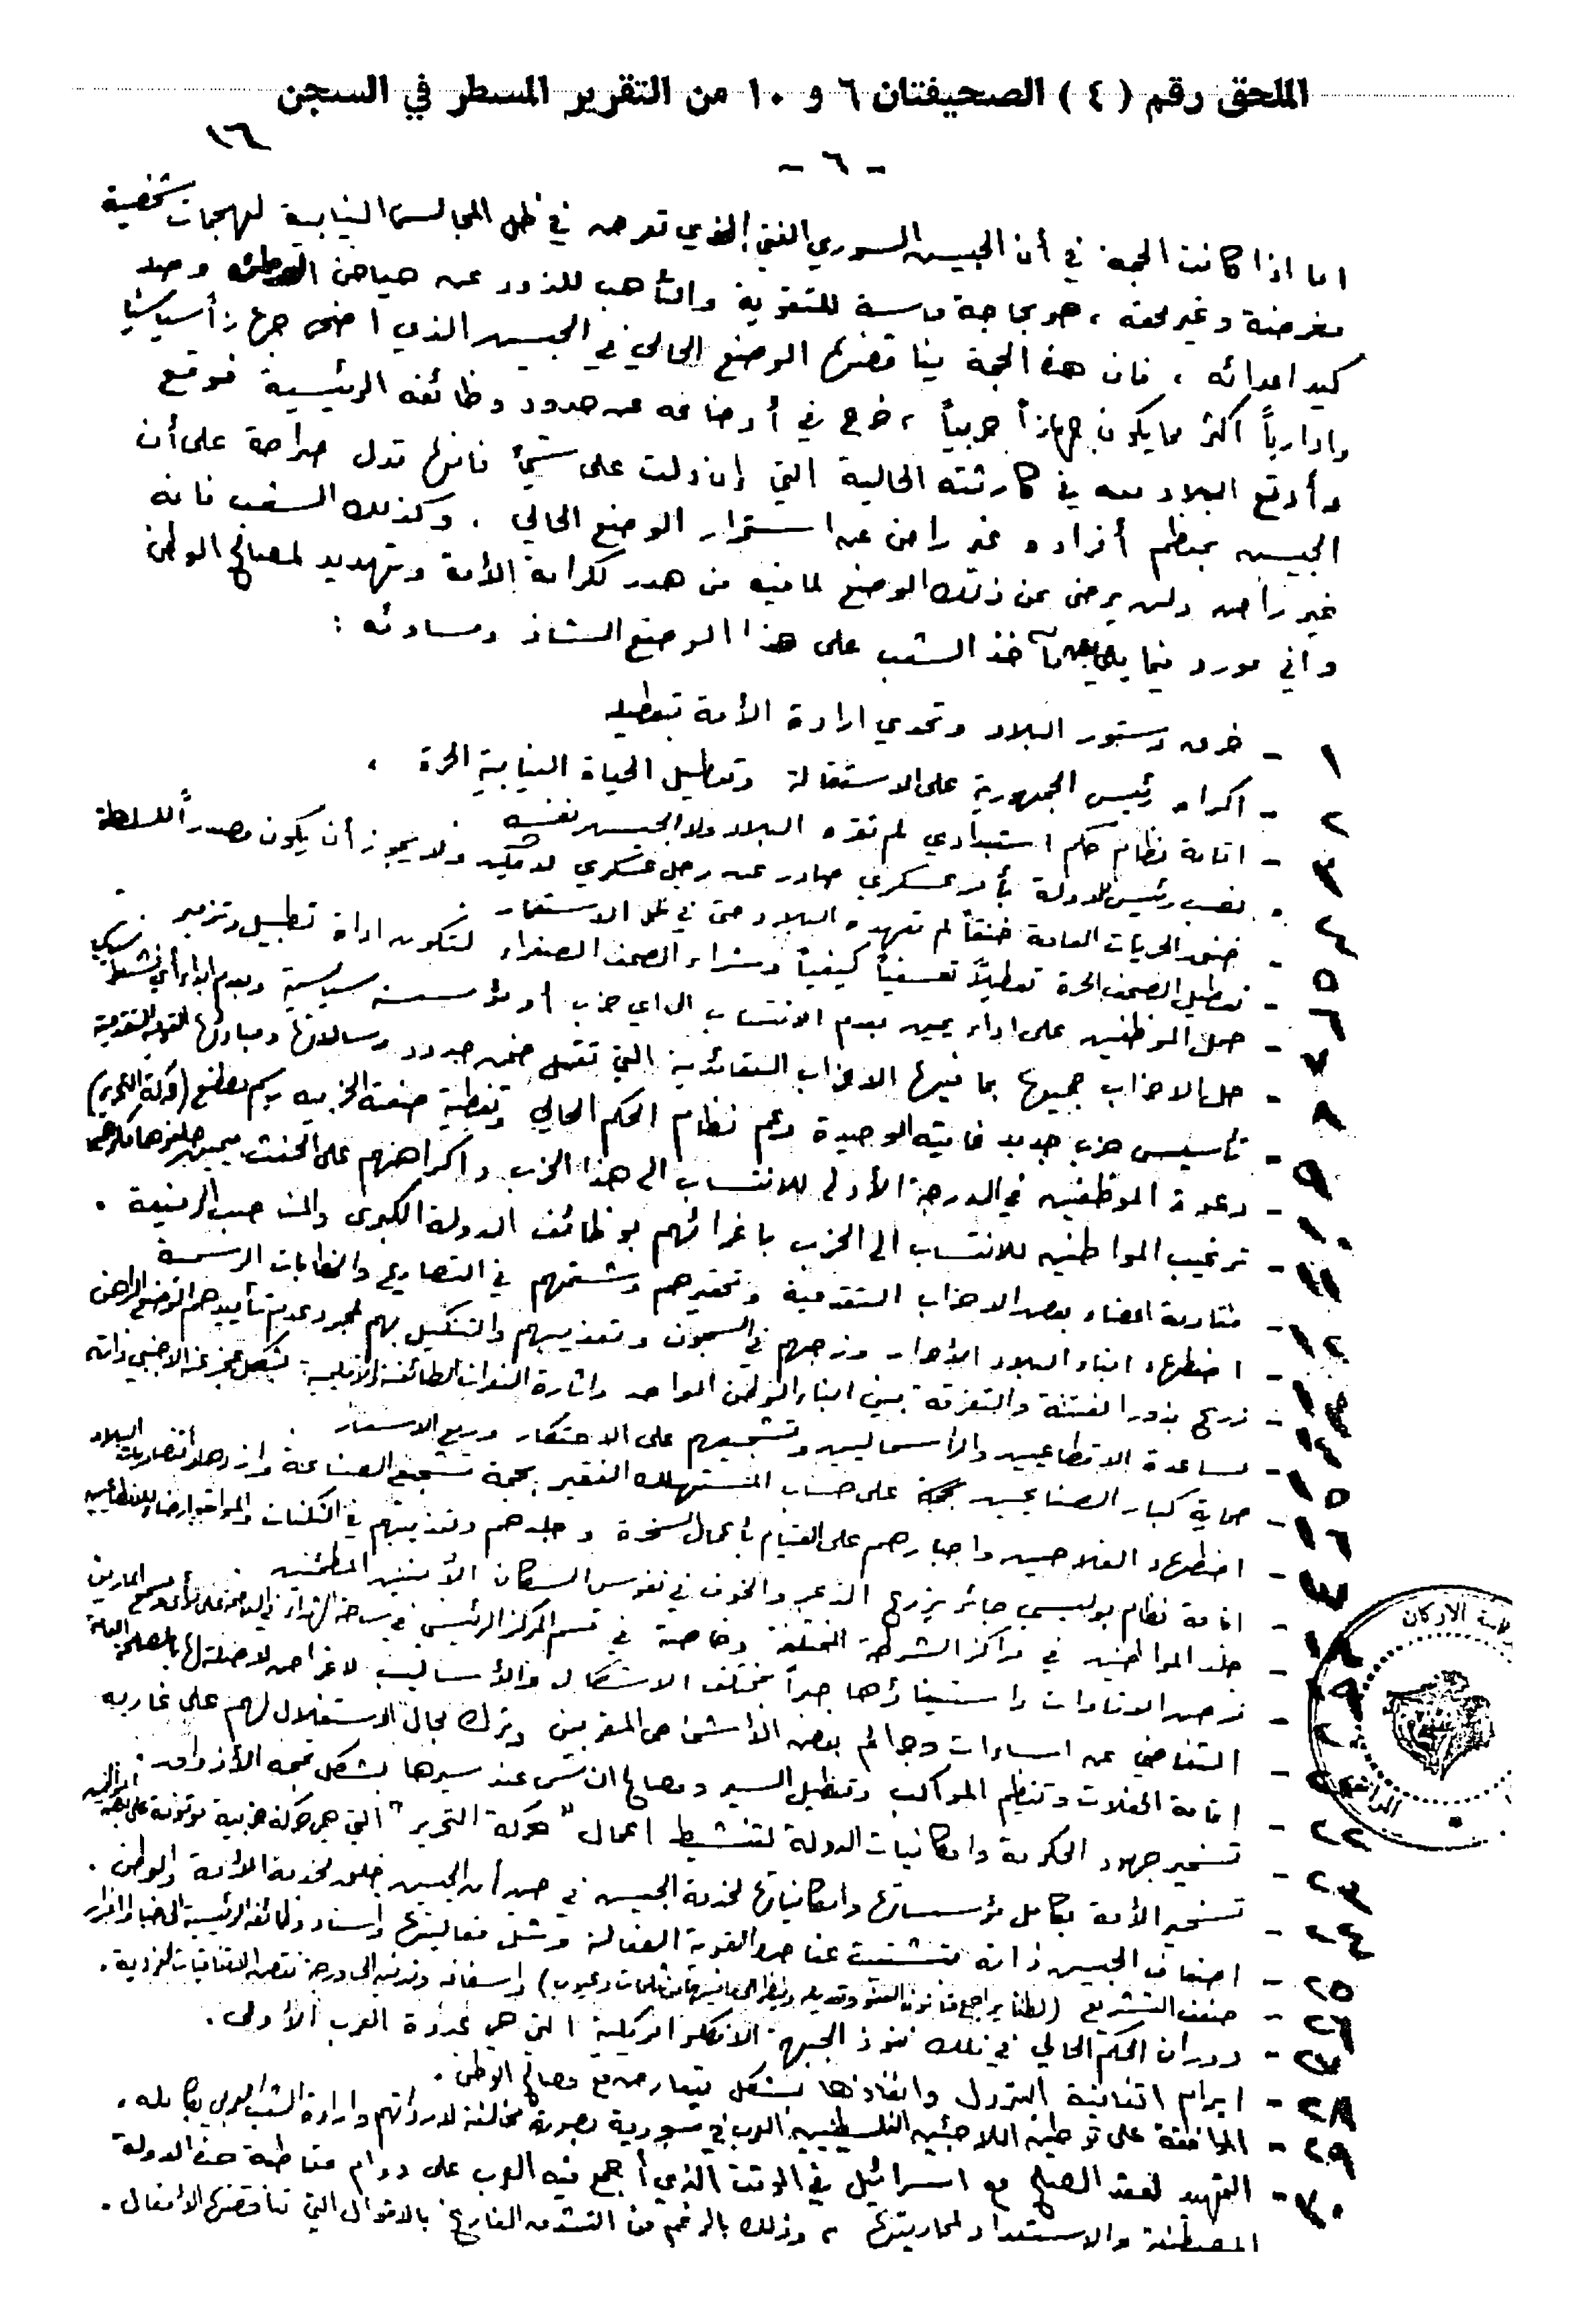 الملحق رقم ( ٤ ) الصحيفتان ٦ و ١٠ من التقرير المسطر في السجن
١٦
- ٦ -
اما اذا كانت الحجة في أن الجيش السوري الفتي الذي تعرض في ظل المجالس النيابية لهجمات شخصية
مغرضة وغير محقه ، هو بحاجة ماسة للتقوية والتأهب للذود عن حياض الوطن وصد
كيد اعدائه ، فان هذه الحجة يناقضها الوضع الحالي في الجيش الذي اضحى جهازاً سياسياً
وادارياً اكثر مما يكون جهازاً حربياً ، خرج في أوضاعه عن حدود وظائفه الرئيسية فوقع
وأوقع البلاد معه في كارثته الحالية التي إن دلت على شيء فانها تدل صراحة على أن
الجيش بمعظم أفراده غير راض عن استمرار الوضع الحالي . وكذلك الشعب فانه
غير راض ولن يرضى عن ذلك الوضع لما فيه من هدر لكرامة الأمة وتهديد لمصالح الوطن
واني مورد فيما يلي بعض مآخذ الشعب على هذا الوضع الشاذ ومساوئه :
١ - خرق دستور البلاد وتحدي ارادة الأمة بتعطيله
٢ - اكراه رئيس الجمهورية على الاستقالة وتعطيل الحياة النيابية الحرة .
٣ - اقامة نظام حكم استبدادي لم تقره البلاد ولا الجيش نفسه
٤ - نصب رئيس للدولة بأمر عسكري صادر عن رجل عسكري لا يملك ولا يجوز أن يكون مصدراً للسلطة
٥ - خنق الحريات العامة خنقاً لم تعهده البلاد حتى في ظل الاستعمار
٦ - تعطيل الصحف الحرة تعطيلاً تعسفياً كيفياً وشراء الصحف الصفراء لتكون اداة تطبيل وتزمير
٧ - حمل الموظفين على اداء يمين بعدم الانتساب الى اي حزب أو مؤسسة سياسية وبعدم ابداء أي نشاط سياسي
٨ - حل الاحزاب جميعها بما فيها الاحزاب العقائدية التي تعمل ضمن حدود رسالاتها ومبادئها التقدمية
٩ - تأسيس حزب جديد غايته الوحيدة دعم نظام الحكم الحالي وتغطية صفته الحزبية باسم مصطنع (حركة التحرير)
١٠ - دعوة الموظفين في الدرجة الأولى للانتساب الى هذا الحزب واكراههم على الحنث بيمين حلفوها مكرهين
١١ - ترغيب المواطنين للانتساب الى الحزب باغرائهم بوظائف الدولة الكبرى والمناصب الرفيعة .
١٢ - مقاومة اعضاء بعض الاحزاب التقدمية وتحقيرهم وشتمهم في التصاريح والخطابات الرسمية
١٣ - اضطهاد ابناء البلاد الأحرار وزجهم في السجون وتعذيبهم والتنكيل بهم لمجرد عدم تأييدهم الوضع الراهن
١٤ - زرع بذور الفتنة والتفرقة بين ابناء الوطن الواحد واثارة النعرات الطائفية والاقليمية بشكل عجز عنه الاجنبي ذاته
١٥ - مساعدة الاقطاعيين والرأسماليين وتشجيعهم على الاحتكار ورفع الاسعار
١٦ - حماية كبار الصناعيين على حساب المستهلك الفقير بحجة تشجيع الصناعة وازدهار اقتصاديات البلاد
١٧ - اضطهاد الفلاحين واجبارهم على القيام بأعمال السخرة وجلدهم وتعذيبهم في الثكنات والمواقع ارضاء للاقطاعيين
١٨ - اقامة نظام بوليسي جائر يزرع الذعر والخوف في نفوس السكان الآمنين المطمئنين
١٩ - جلد المواطنين في مراكز الشرطة المختلفة وخاصة في قسم المركز الرئيسي في ساحة الشهداء في العاصمة على مرأى ومسمع المارين
٢٠ - فرض الاتاوات واستيفاؤها جبراً بمختلف الاشكال والأساليب لاغراض لا صلة لها بالمصلحة العامة
٢١ - التغاضي عن اساءات وجرائم بعض الاشخاص المقربين وترك مجال الاستغلال لهم على غاربه
٢٢ - اقامة الحفلات وتنظيم المواكب وتعطيل السير ومصالح الناس عند سيرها بشكل تمجه الأذواق .
٢٣ - تسخير جهود الحكومة وامكانيات الدولة لتنشيط اعمال " حركة التحرير " التي هي حركة حزبية
٢٤ - تسخير الأمة بكامل مؤسساتها وامكانياتها لخدمة الجيش في حين أن الجيش خلق لخدمة الأمة والوطن .
٢٥ - اضعاف الجيش ذاته بتشتيت عناصره القوية الفعالة وشل فعاليتها واسناد وظائفه الرئيسية الى ضباط
٢٦ - ضعف التشريع (لطفا يراجع قانون العفو وتعديله) واسفافه وتدنيه الى درجة نقض الاتفاقيات الفردية .
٢٧ - دوران الحكم الحالي في فلك نفوذ الجبهة الانكلو امريكية التي هي عدوة العرب الأولى .
٢٨ - ابرام اتفاقية البترول وانفاذها بشكل يتعارض مع مصالح الوطن .
٢٩ - الموافقة على توطين اللاجئين الفلسطينيين العرب في سورية بصورة مخالفة لارادتهم وارادة الشعب العربي بكامله .
٣٠ - التمهيد لعقد الصلح مع اسرائيل في الوقت الذي أجمع فيه العرب على دوام مقاطعة هذه الدولة
المصطنعة والاستعداد لمحاربتها ، وذلك بالرغم من التشدق الفارغ بالاقوال التي تناقضها الأفعال .
الاركان